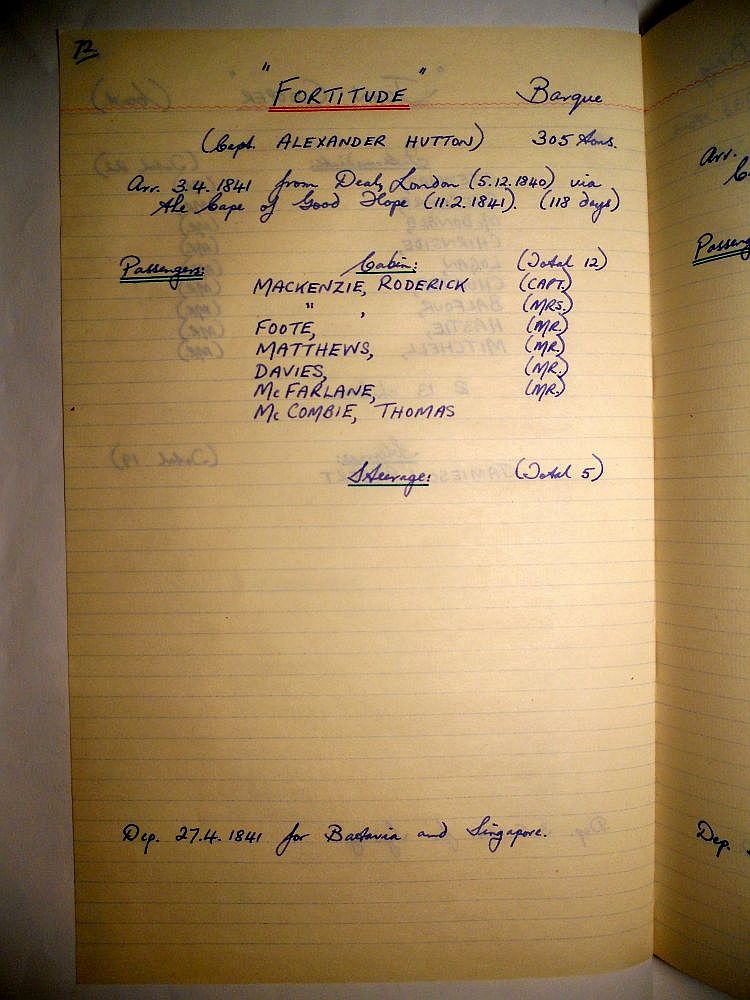 72
"FORTITUDE" Barque
(Capt. ALEXANDER HUTTON) 305 tons.
Arr. 3.4.1841 from Deal, London (5.12.1840) via
the Cape of Good Hope (11.2.1841). (118 days)
Passengers: Cabin: (Total 12)
MACKENZIE, RODERICK (CAPT.)
" , (MRS.)
FOOTE, (MR.)
MATTHEWS, (MR.)
DAVIES, (MR.)
McFARLANE, (MR.)
McCOMBIE, THOMAS
Steerage: (Total 5)
Dep. 27.4.1841 for Batavia and Singapore.
Arr.
Passeng
Dep.